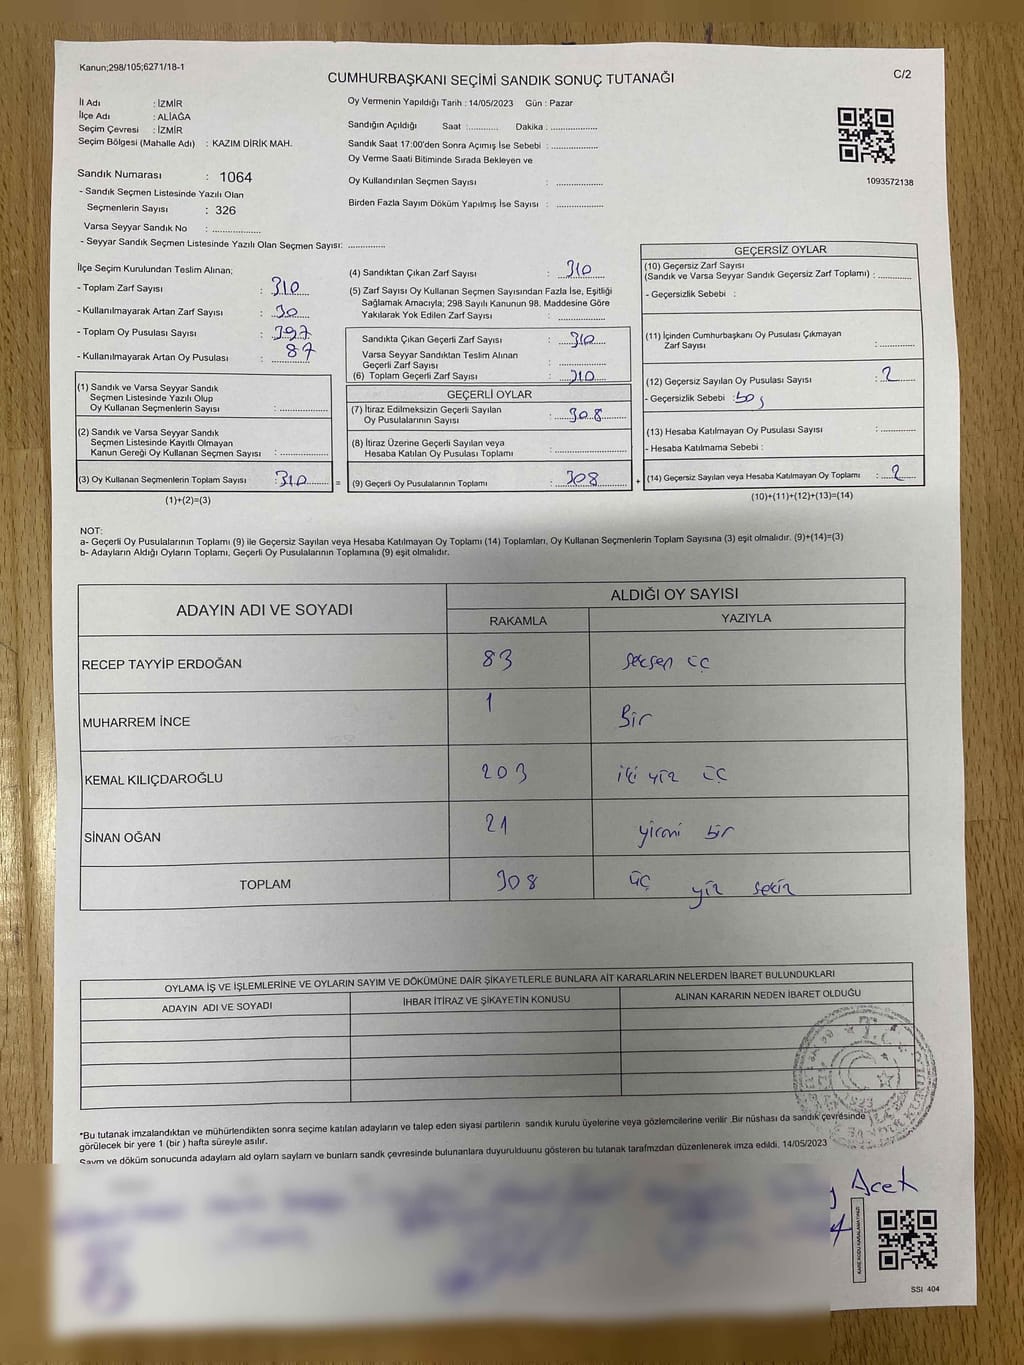 Kanun;298/105;6271/18-1
CUMHURBAŞKANI SEÇİMİ SANDIK SONUÇ TUTANAĞI
C/2
İl Adı : İZMİR
İlçe Adı : ALİAĞA
Seçim Çevresi : İZMİR
Seçim Bölgesi (Mahalle Adı) : KAZIM DİRİK MAH.
Oy Vermenin Yapıldığı Tarih : 14/05/2023 Gün : Pazar
Sandığın Açıldığı Saat :........... Dakika : ..................
Sandık Saat 17:00'den Sonra Açımış İse Sebebi : ..................
Oy Verme Saati Bitiminde Sırada Bekleyen ve
Oy Kullandırılan Seçmen Sayısı : ..................
Birden Fazla Sayım Döküm Yapılmış İse Sayısı : ..................
1093572138
Sandık Numarası : 1064
- Sandık Seçmen Listesinde Yazılı Olan
Seçmenlerin Sayısı : 326
Varsa Seyyar Sandık No : ..................
- Seyyar Sandık Seçmen Listesinde Yazılı Olan Seçmen Sayısı: ..............
İlçe Seçim Kurulundan Teslim Alınan;
- Toplam Zarf Sayısı : 310
- Kullanılmayarak Artan Zarf Sayısı : 30
- Toplam Oy Pusulası Sayısı : 397
- Kullanılmayarak Artan Oy Pusulası : 87
(1) Sandık ve Varsa Seyyar Sandık
Seçmen Listesinde Yazılı Olup
Oy Kullanan Seçmenlerin Sayısı : ..................
(2) Sandık ve Varsa Seyyar Sandık
Seçmen Listesinde Kayıtlı Olmayan
Kanun Gereği Oy Kullanan Seçmen Sayısı : ..................
(3) Oy Kullanan Seçmenlerin Toplam Sayısı : 310
=
(1)+(2)=(3)
(4) Sandıktan Çıkan Zarf Sayısı : 310
(5) Zarf Sayısı Oy Kullanan Seçmen Sayısından Fazla İse, Eşitliği
Sağlamak Amacıyla; 298 Sayılı Kanunun 98. Maddesine Göre
Yakılarak Yok Edilen Zarf Sayısı : ..................
Sandıkta Çıkan Geçerli Zarf Sayısı : 310
Varsa Seyyar Sandıktan Teslim Alınan
Geçerli Zarf Sayısı : ..................
(6) Toplam Geçerli Zarf Sayısı : 310
GEÇERLİ OYLAR
(7) İtiraz Edilmeksizin Geçerli Sayılan
Oy Pusulalarının Sayısı : 308
(8) İtiraz Üzerine Geçerli Sayılan veya
Hesaba Katılan Oy Pusulası Toplamı : ..................
(9) Geçerli Oy Pusulalarının Toplamı : 308
+
GEÇERSİZ OYLAR
(10) Geçersiz Zarf Sayısı
(Sandık ve Varsa Seyyar Sandık Geçersiz Zarf Toplamı) : .............
- Geçersizlik Sebebi :
(11) İçinden Cumhurbaşkanı Oy Pusulası Çıkmayan
Zarf Sayısı : .............
(12) Geçersiz Sayılan Oy Pusulası Sayısı : 2
- Geçersizlik Sebebi : boş
(13) Hesaba Katılmayan Oy Pusulası Sayısı : .............
- Hesaba Katılmama Sebebi :
(14) Geçersiz Sayılan veya Hesaba Katılmayan Oy Toplamı : 2
(10)+(11)+(12)+(13)=(14)
NOT:
a- Geçerli Oy Pusulalarının Toplamı (9) ile Geçersiz Sayılan veya Hesaba Katılmayan Oy Toplamı (14) Toplamları, Oy Kullanan Seçmenlerin Toplam Sayısına (3) eşit olmalıdır. (9)+(14)=(3)
b- Adayların Aldığı Oyların Toplamı, Geçerli Oy Pusulalarının Toplamına (9) eşit olmalıdır.
ADAYIN ADI VE SOYADI
ALDIĞI OY SAYISI
RAKAMLA YAZIYLA
RECEP TAYYİP ERDOĞAN 83 seksen üç
MUHARREM İNCE 1 Bir
KEMAL KILIÇDAROĞLU 203 iki yüz üç
SİNAN OĞAN 21 yirmi bir
TOPLAM 308 üç yüz sekiz
OYLAMA İŞ VE İŞLEMLERİNE VE OYLARIN SAYIM VE DÖKÜMÜNE DAİR ŞİKAYETLERLE BUNLARA AİT KARARLARIN NELERDEN İBARET BULUNDUKLARI
ADAYIN ADI VE SOYADI İHBAR İTİRAZ VE ŞİKAYETİN KONUSU ALINAN KARARIN NEDEN İBARET OLDUĞU
*Bu tutanak imzalandıktan ve mühürlendikten sonra seçime katılan adayların ve talep eden siyasi partilerin sandık kurulu üyelerine veya gözlemcilerine verilir .Bir nüshası da sandık çevresinde
görülecek bir yere 1 (bir ) hafta süreyle asılır.
Sayım ve döküm sonucunda adayların ald oyların sayların ve bunların sandk çevresinde bulunanlara duyurulduunu gösteren bu tutanak tarafmzdan düzenlenerek imza edildi. 14/05/2023
Acet
KARE KODU KARALAMAYINIZ!
SSI 404